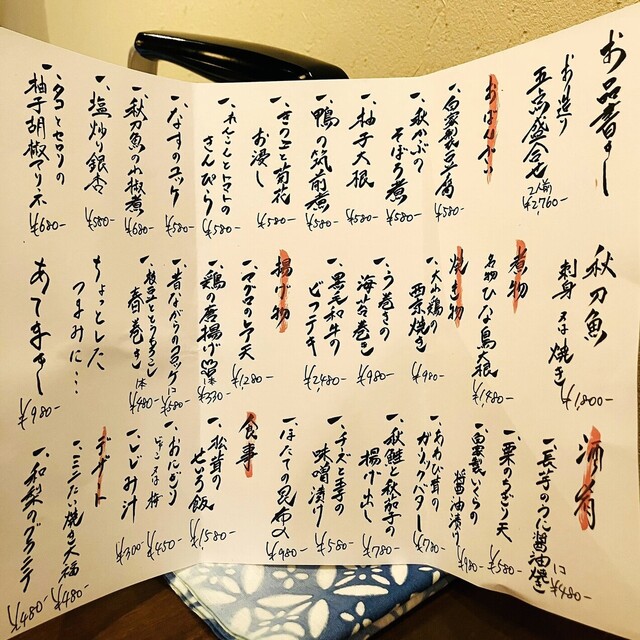 お品書き
お造り
五点盛合せ
2人前
¥2,760-
おばんざい
一、自家製豆腐
¥580-
一、秋かぶの
そぼろ煮
¥580-
一、柚子大根
¥580-
一、鴨の筑前煮
¥580-
一、きのこと菊花
お浸し
¥580-
一、れんこんとトマトの
きんぴら
¥580-
一、なすのユッケ
¥580-
一、秋刀魚の山椒煮
¥680-
一、塩炒り銀杏
¥580-
一、タコとセロリの
柚子胡椒マリネ
¥680-
秋刀魚
刺身 又は 焼き
¥1,800-
煮物
名物ひな鳥大根
¥1,480-
焼き物
一、大山鶏の
西京焼き
¥980-
一、う巻きの
海苔巻き
¥980-
一、黒毛和牛の
ビフテキ
¥2,480-
揚げ物
一、マグロのレア天
¥1,280-
一、鶏の唐揚げ
¥330-
一、昔ながらのコロッケ
¥580-
一、枝豆ととうもろこし
春巻き
1本
¥480-
ちょっとした
つまみに…
あてまき
¥980-
酒肴
一、長芋のうに醤油焼き
¥480-
一、栗のちぎり天
¥580-
一、自家製いくらの
醤油漬け
¥980-
一、あわび茸の
ガーリックバター
¥780-
一、秋鮭と秋茄子の
揚げ出し
¥780-
一、チーズと玉子の
味噌漬け
¥580-
一、ほたての昆布〆
¥980-
食事
一、松茸の
せいろ飯
¥1,580-
一、おにぎり
じゃこ 又は 梅
¥450-
一、しじみ汁
¥300-
デザート
一、ミニたい焼き大福
¥480-
一、和梨のグラニテ
¥480-